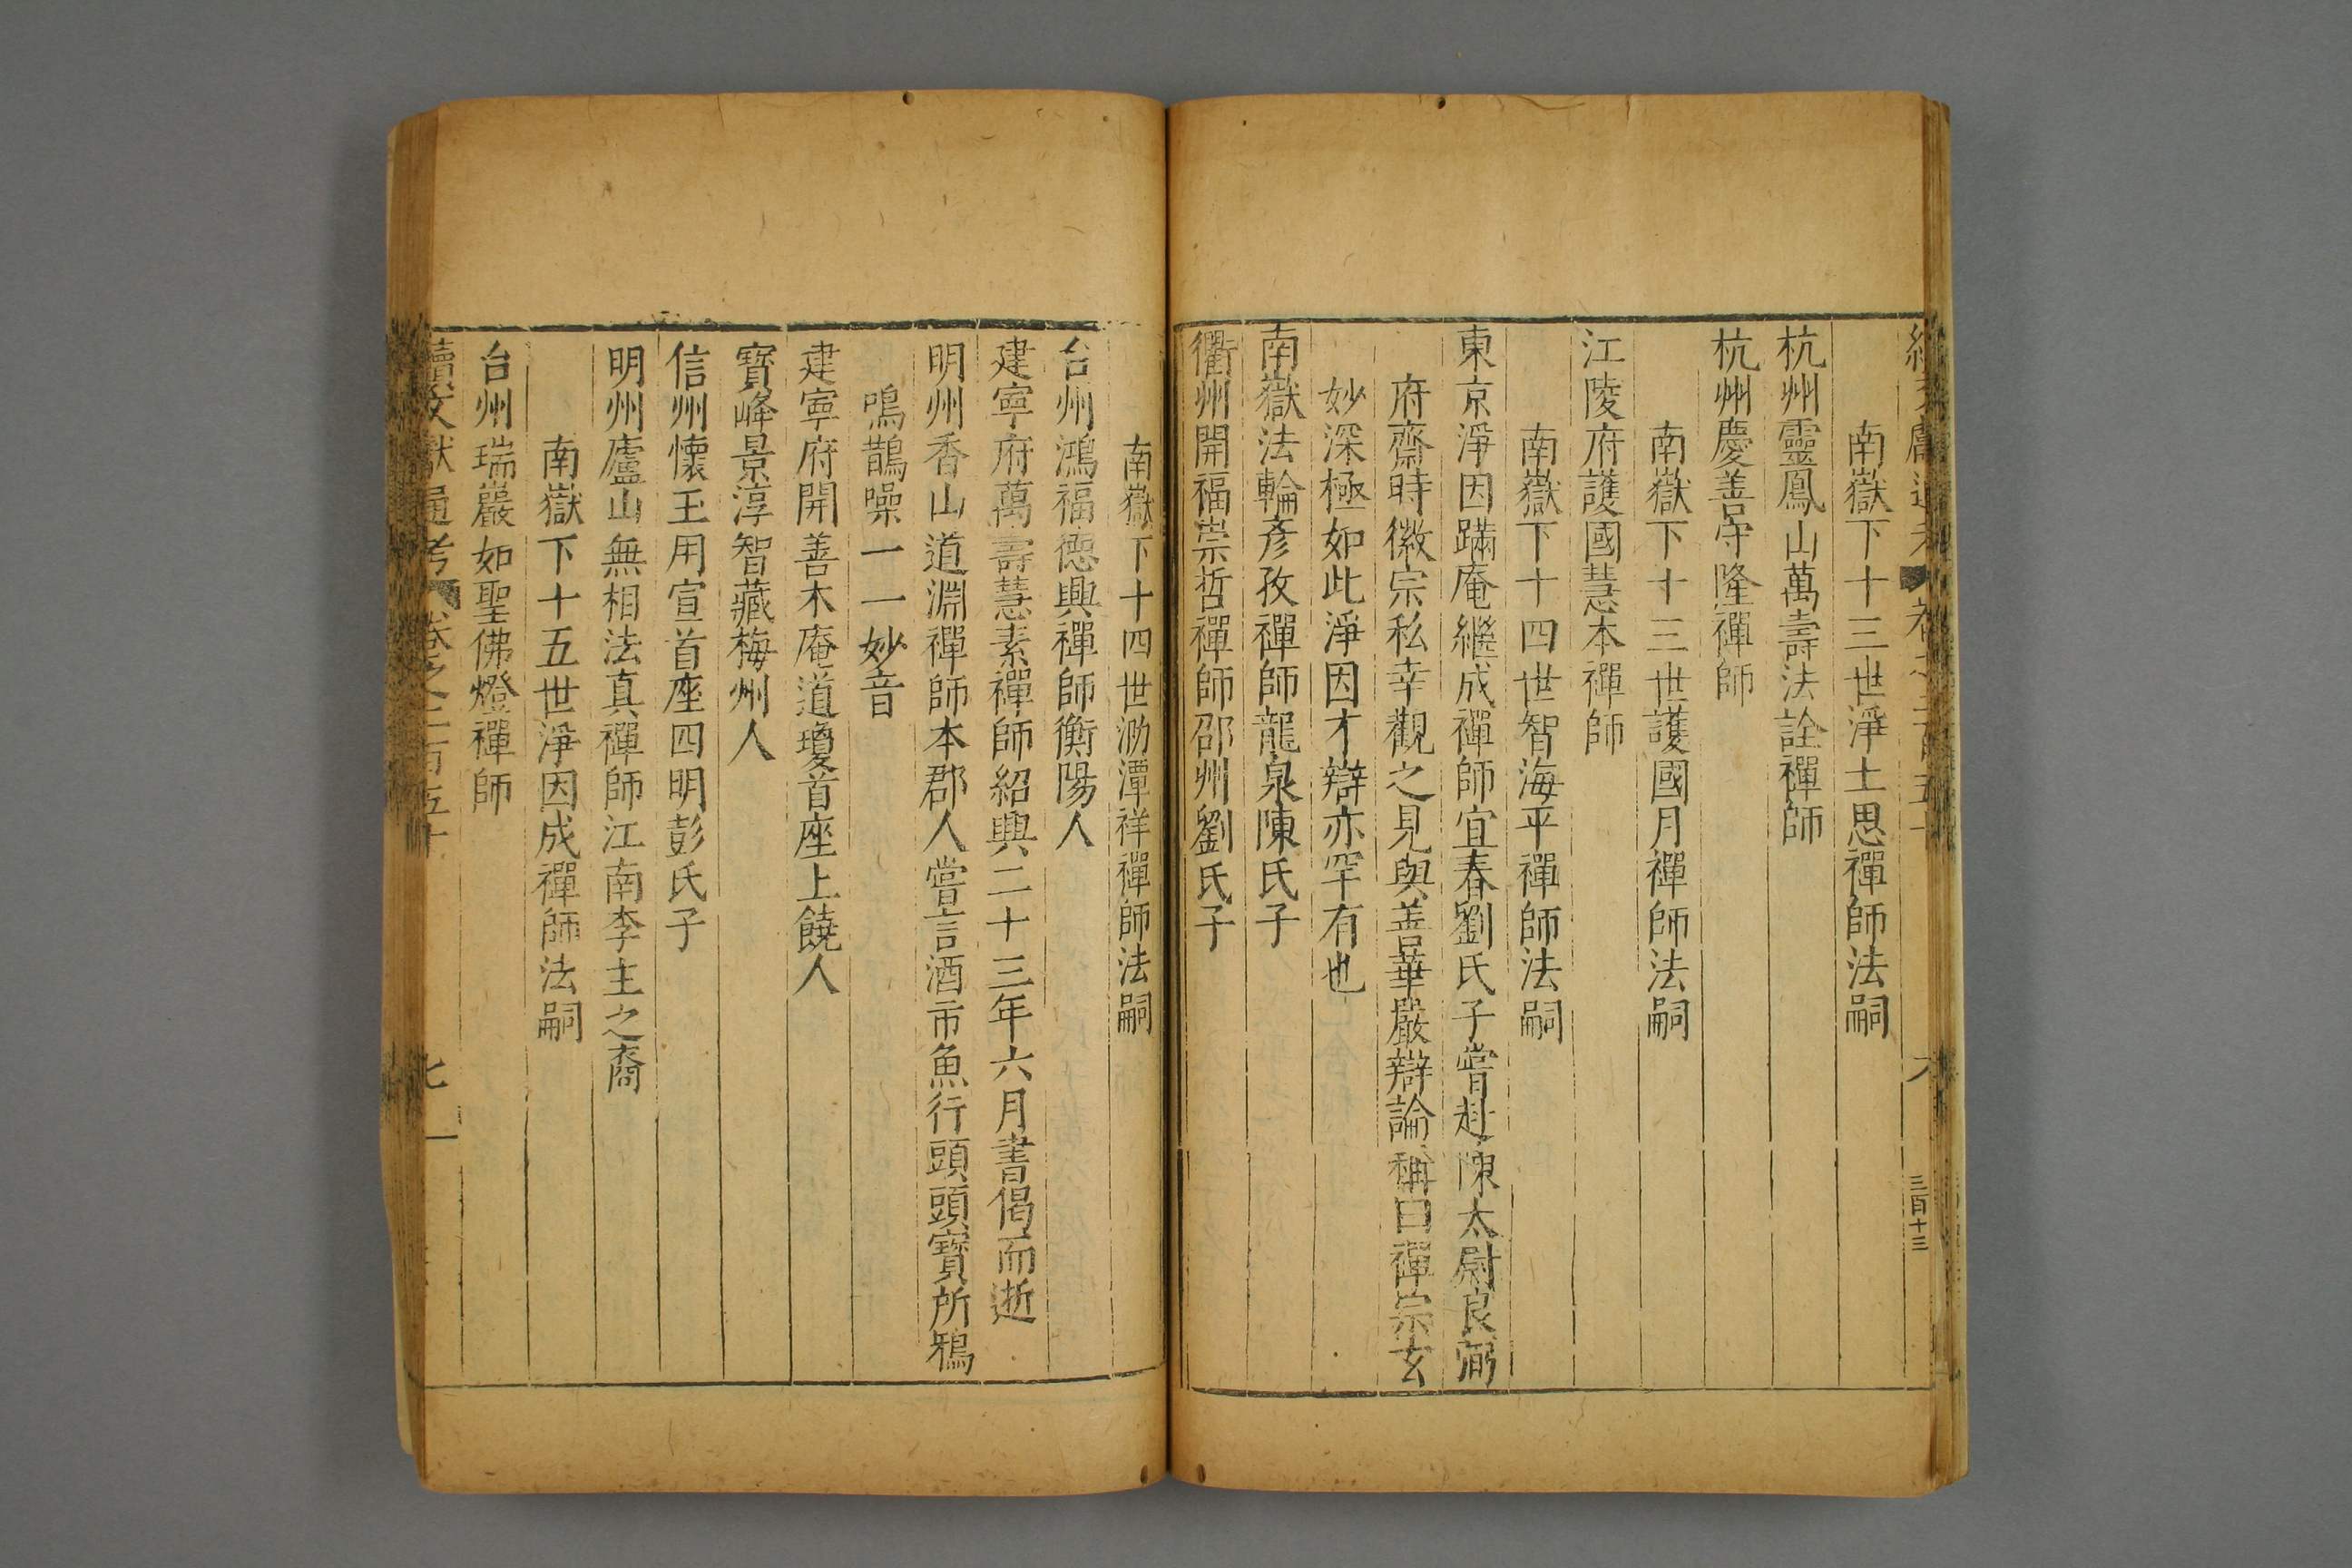 南嶽下十三世淨土思禪師法嗣
杭州靈鳳山萬壽法詮禪師
杭州慶善守隆禪師
南嶽下十三世護國月禪師法嗣
江陵府護國慧本禪師
南嶽下十四世智海平禪師法嗣
東京淨因蹣庵繼成禪師宜春劉氏子嘗赴陳太尉良弼
府齋時徽宗私幸觀之見與善華嚴辯論稱曰禪宗玄
妙深極如此淨因才辯亦罕有也
南嶽法輪彥孜禪師龍泉陳氏子
衢州開福崇哲禪師邵州劉氏子
三百十三
南嶽下十四世泐潭祥禪師法嗣
台州鴻福德興禪師衡陽人
建寧府萬壽慧素禪師紹興二十三年六月書偈而逝
明州香山道淵禪師本郡人嘗言酒市魚行頭頭寶所鴉
鳴鵲噪一一妙音
建寧府開善木庵道瓊首座上饒人
寶峰景淳智藏梅州人
信州懷玉用宣首座四明彭氏子
明州廬山無相法真禪師江南李主之裔
南嶽下十五世淨因成禪師法嗣
台州瑞巖如聖佛燈禪師
續文獻通考 卷之二百五十